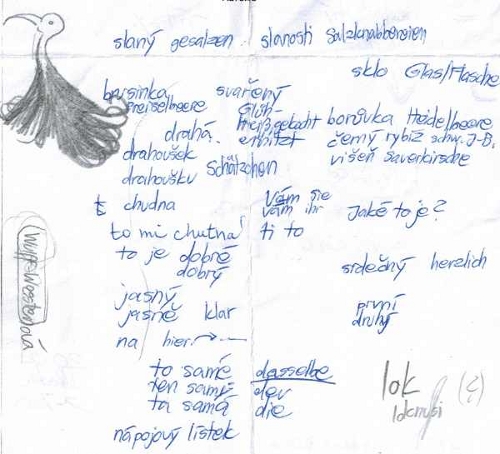 slaný gesalzen slanosti Salzknabbereien
sklo Glas/Flasche
brusinka svařený
Preiselbeere Glüh-
heiß gekocht borůvka Heidelbeere
drahá erhitzt černý rybíz schw. J-B.
drahoušek Schätzchen višeň Sauerkirsche
drahoušku
chudna Vám Sie
vám ihr Jaké to je?
to mi chutná ti to
to je dobré
dobrý srdečný herzlich
jasný
jasně klar první
druhý
na hier
to samé dasselbe
ten samý der
ta samá die
lok (č)
nápojový lístek